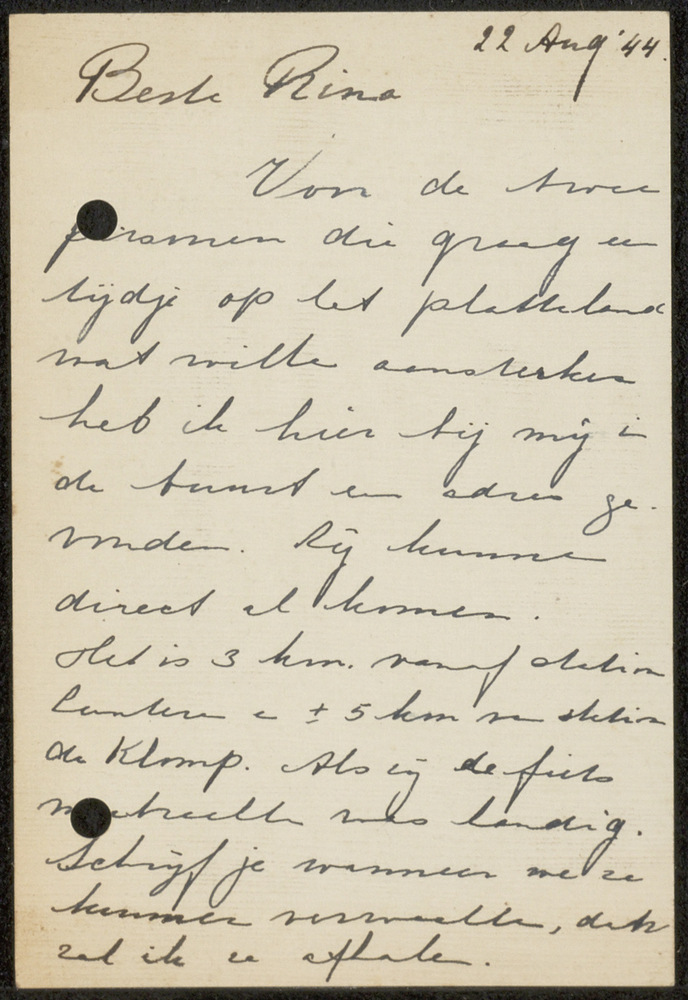 22 Aug '44.
Beste Rina
Voor de twee
personen die graag een
tijdje op het platteland
wat willen aansterken
heb ik hier bij mij in
de buurt een adres ge-
vonden. Zij kunnen
direct al komen.
Het is 3 km. vanaf station
Lunteren en ± 5 km van station
de Klomp. Als zij de fiets
meebrachten was handig.
Schrijf je wanneer we ze
kunnen verwachten, dan
zal ik ze afhalen.